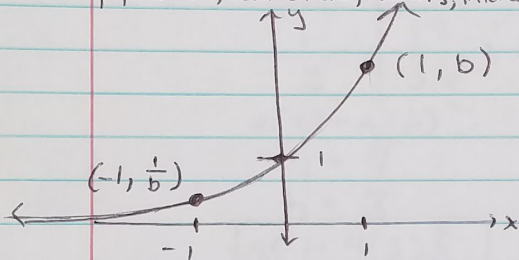 y
(1, b)
1
(-1, 1/b)
x
-1
1